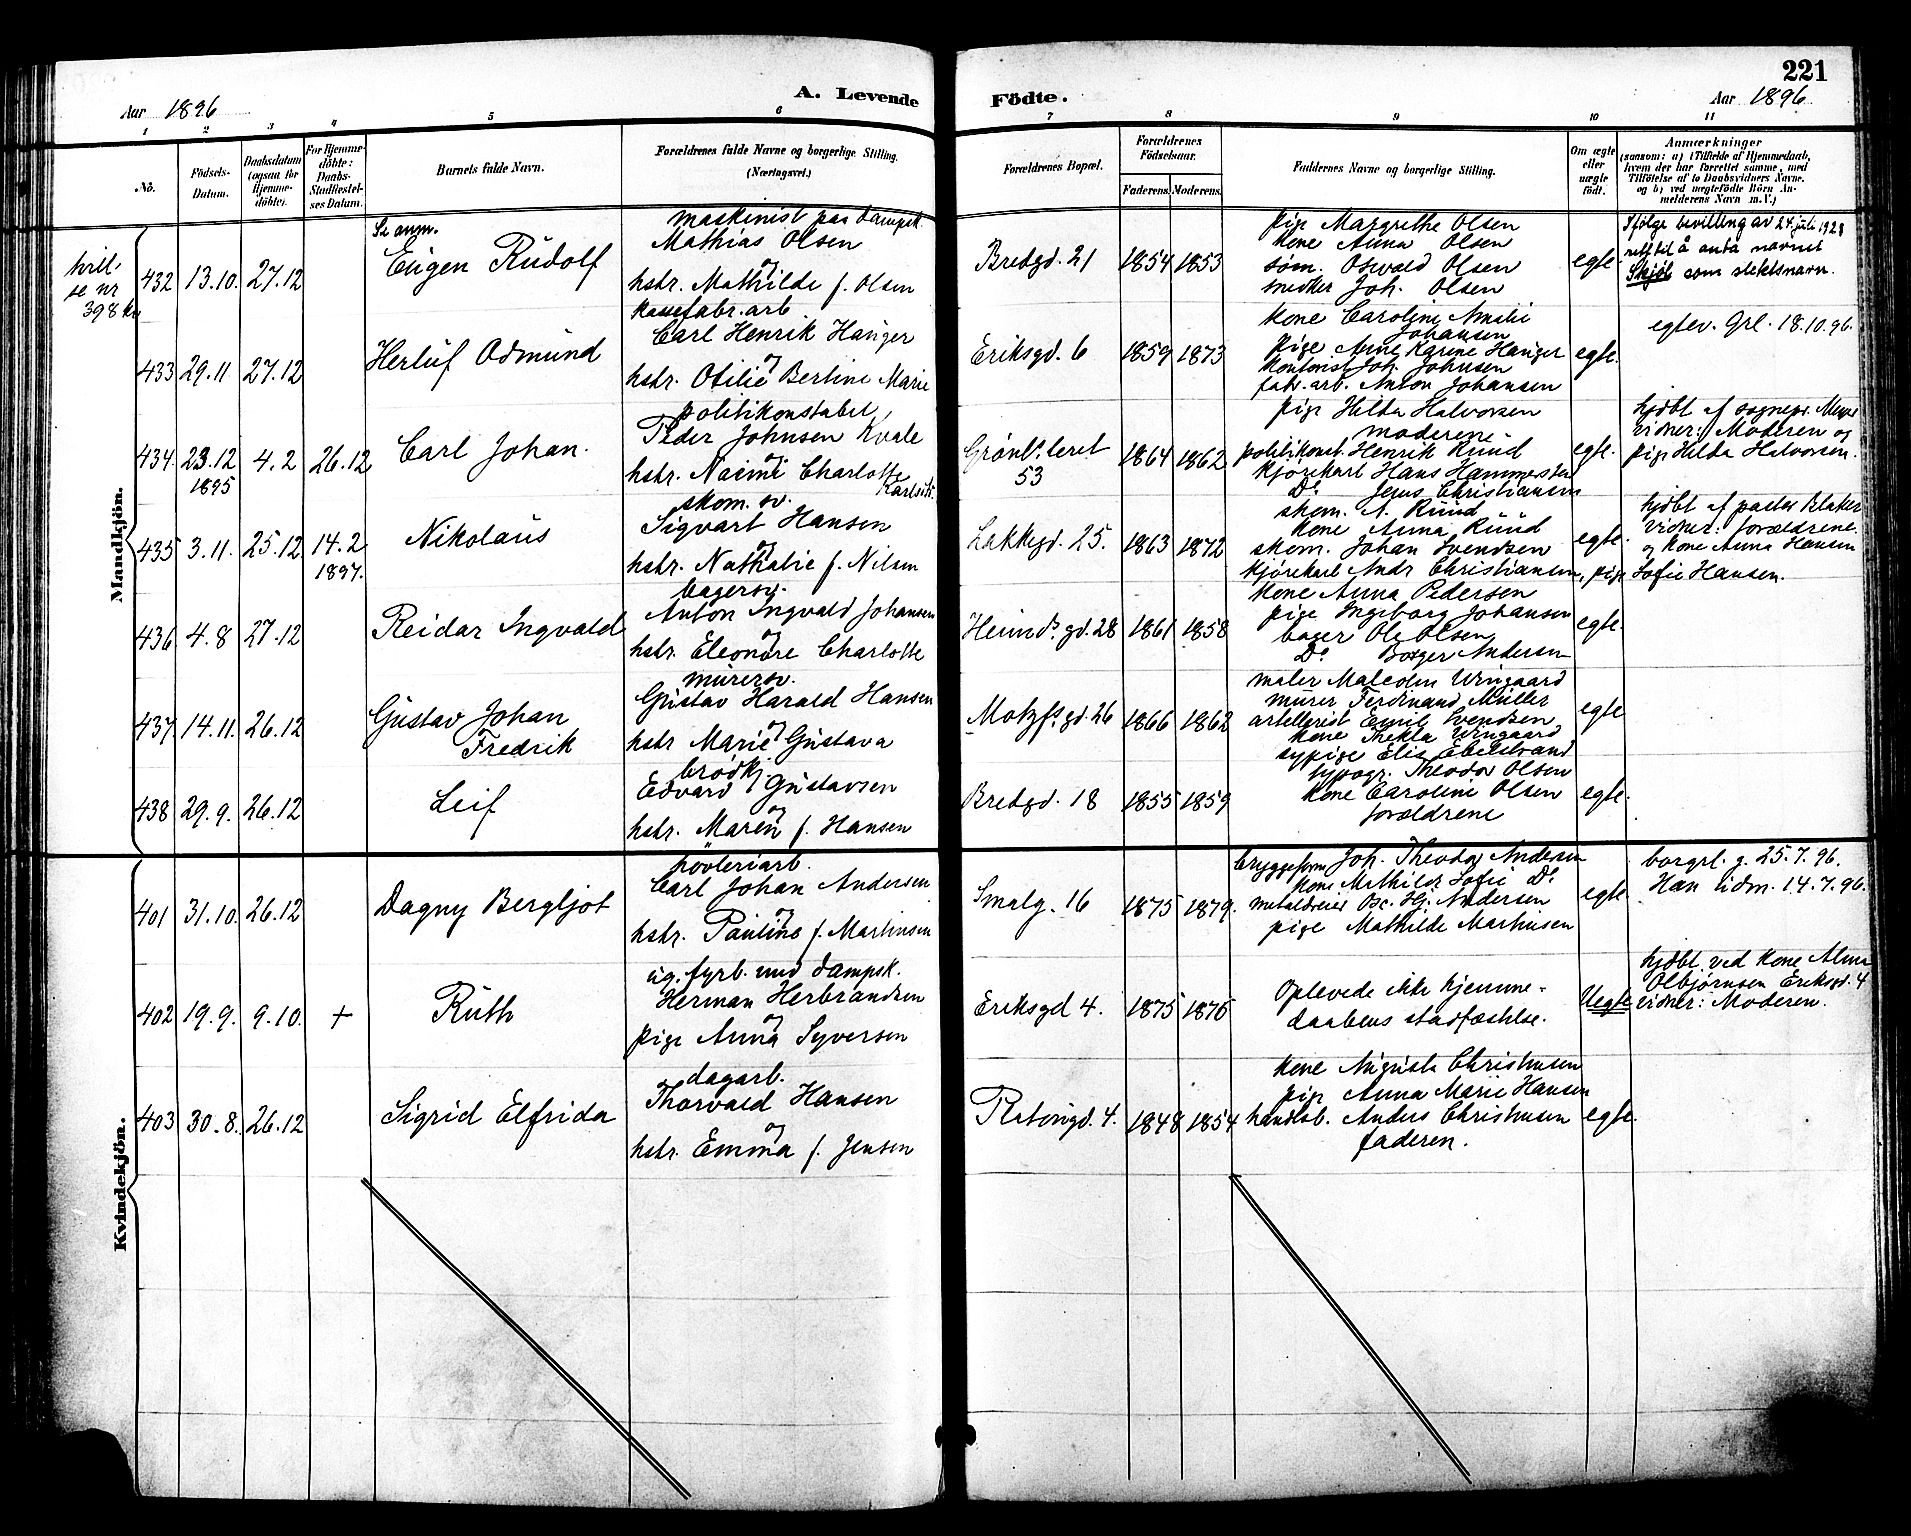 221
Aar 1896
A. Levende Födte.
Aar 1896
1 2 3 4 5 6 7 8 9 10 11
No.
Födsels-
Datum.
Daabsdatum
(ogsaa for
Hjemme-
döbte).
For Hjemme-
döbte:
Daabs-
Stadfæstel-
ses Datum.
Barnets fulde Navn.
Forældrenes fulde Navne og borgerlige Stilling.
(Næringsvei.)
Forældrenes Bopæl.
Forældrenes
Födselsaar.
Faderens. Moderens.
Faddernes Navne og borgerlige Stilling.
Om ægte
eller
uægte
födt.
Anmærkninger
(saasom: a) i Tilfælde af Hjemmedaab,
hvem der har forrettet samme, med
Tilföielse af to Daabsvidners Navne,
og b) ved uægtefödte Börn An-
melderens Navn m. V.)
Mandkjön.
398
432 13.10. 27.12
Se anm.
Eugen Rudolf
maskinist paa dampsk.
Mathias Olsen
og
hstr. Mathilde f. Olsen
Bredgd. 21 1854 1853
pige Margrethe Olsen
kone Anna Olsen
søm. Oswald Olsen
snedker Joh. Olsen
egte.
Ifølge bevilling av 24 juli 1928
rett til å anta navnet
Skjøl som slektsnavn.
433 29.11 27.12
Herluf Odmund
fabr. arb.
Carl Henrik Hauger
og
hstr. Otilie Bertine Marie
Eriksgd. 6 1859 1873
kone Caroline Amalie
Johansen
pige Arne Karene Hauger
kontorist Joh. Johnsen
fabr. arb. Anton Johansen
egte.
egtev. Grl. 18.10.96.
434. 23.12 4.2 26.12
1895
Carl Johan.
politikonstabel
Peder Johnsen Kvale
og
hstr. Naimi Charlotte
Grønl.leret
53
1864 1862
pige Hilda Halvorsen
moderene
politikonst. Henrik Ruud
kjørekarl Hans Hammersten
Do Jens Christiansen
egte.
hjdbt af sognepr.
vidner: Moderen og
pige Hilda Halvorsen.
435 3.11. 25.12 14.2
1897.
Nikolaus
skom. sv.
Sigvart Hansen
og
hstr. Nathalie f. Nilsen
Lakkegd. 25. 1863 1872
skom. A. Ruud
kone Anna Ruud
skom. Johan Svendsen
kjørekarl Andr Christiansen, pige Sofie Hansen.
egte.
hjdbt af pastor Blaker
vidner: forældrene.
og kone Anna Hansen
436 4.8 27.12
Reidar Ingvald
bagersv.
Anton Ingvald Johansen
og
hstr. Eleonore Charlotte
Heimds. gd. 28 1861 1858
kone Anna Pedersen
pige Ingeborg Johansen
bager Ole Olsen
Do Borger Andersen
egte.
437 14.11. 26.12
Gustav Johan
Fredrik
murersv.
Gustav Harald Hansen
og
hstr Marie Gustava
Motzfs. gd. 26 1866 1862
maler Malcolm Wingaard
murer Ferdinand Müller
artellerist Emil Svendsen
kone Thekla Wingaard
sypige Elis Ebelstrand
egte
438 29.9. 26.12
Leif
brødkj.
Edvard Gustavsen
og
hstr. Maren f. Hansen
Bredgd. 18 1855 1859
typogr. Theodor Olsen
kone Caroline Olsen
forældrene
egte.
Kvindekjön.
401 31.10. 26.12
Dagny Bergljot
høvleriarb.
Carl Johan Andersen
og
hstr. Pauline f. Martinsen
Smalg. 16 1875 1879.
bryggeform Joh. Theodor Andersen
kone Mathilde Sofie Do
metaldreier Osc. Hj. Andersen
pige Mathilde Martinsen
egte.
borgrl. g. 25.7.96.
Han udm. 14.7.96.
402 19.9. 9.10. +
Ruth
ug. fyrb. med dampsk.
Herman Herbrandsen
og
pige Anna Syversen
Eriksgd 4. 1875 1876
Oplevede ikke hjemme-
daabens stadfæstelse.
Uegte
hjdbt. ved kone Alma
Olbjørnsen Eriksgd. 4
vidner: Moderen.
403 30.8. 26.12
Sigrid Elfrida
dagarb.
Thorvald Hansen
og
hstr. Emma f. Jensen
Platougd. 4. 1848 1854
kone Augusta Christensen
pige Anna Marie Hansen
handlsb. Anders Christensen
faderen.
egte.